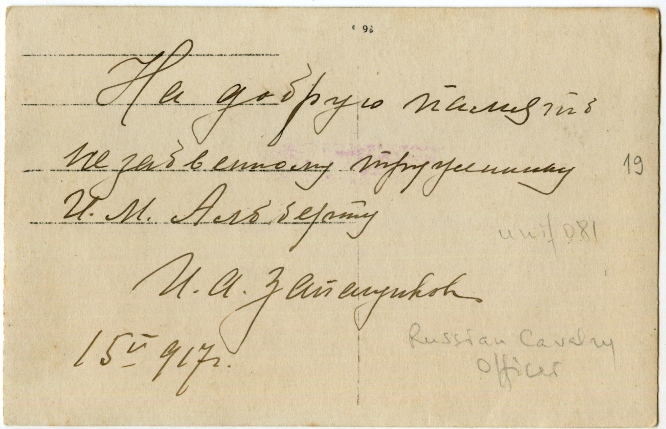 96
На добрую память
незабвенному труженику
И. М. Альберту
И. А.
15 V 917 г.
19
unif 081
Russian Cavalry
Officer